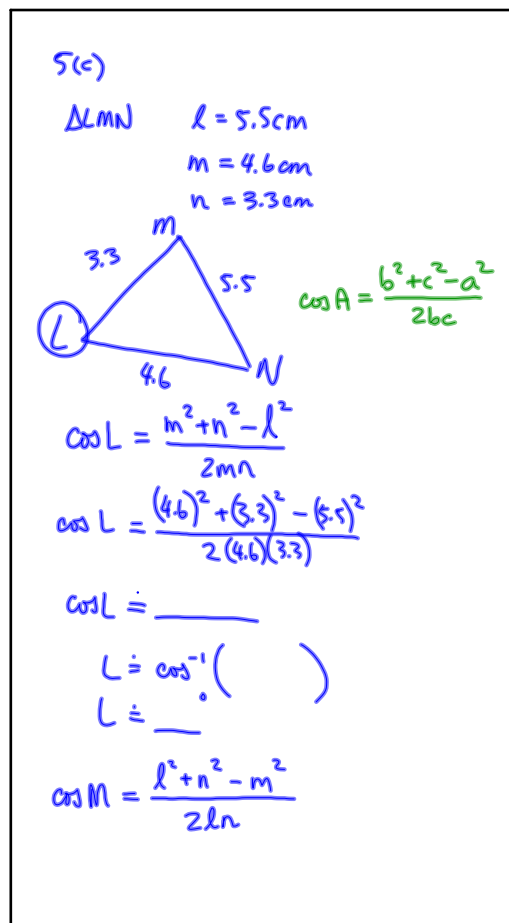 5(c)
ΔLMN l = 5.5cm
m = 4.6cm
n = 3.3cm
M
3.3
5.5
cosA = (b² + c² - a²) / 2bc
L
4.6
N
cosL = (m² + n² - l²) / 2mn
cosL = ((4.6)² + (3.3)² - (5.5)²) / 2(4.6)(3.3)
cosL ≐ ____
L ≐ cos⁻¹( )
L ≐ __°
cosM = (l² + n² - m²) / 2ln